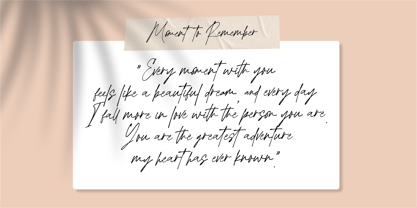 Moment to Remember
"Every moment with you
feels like a beautiful dream, and every day
I fall more in love with the person you are.
You are the greatest adventure
my heart has ever known".